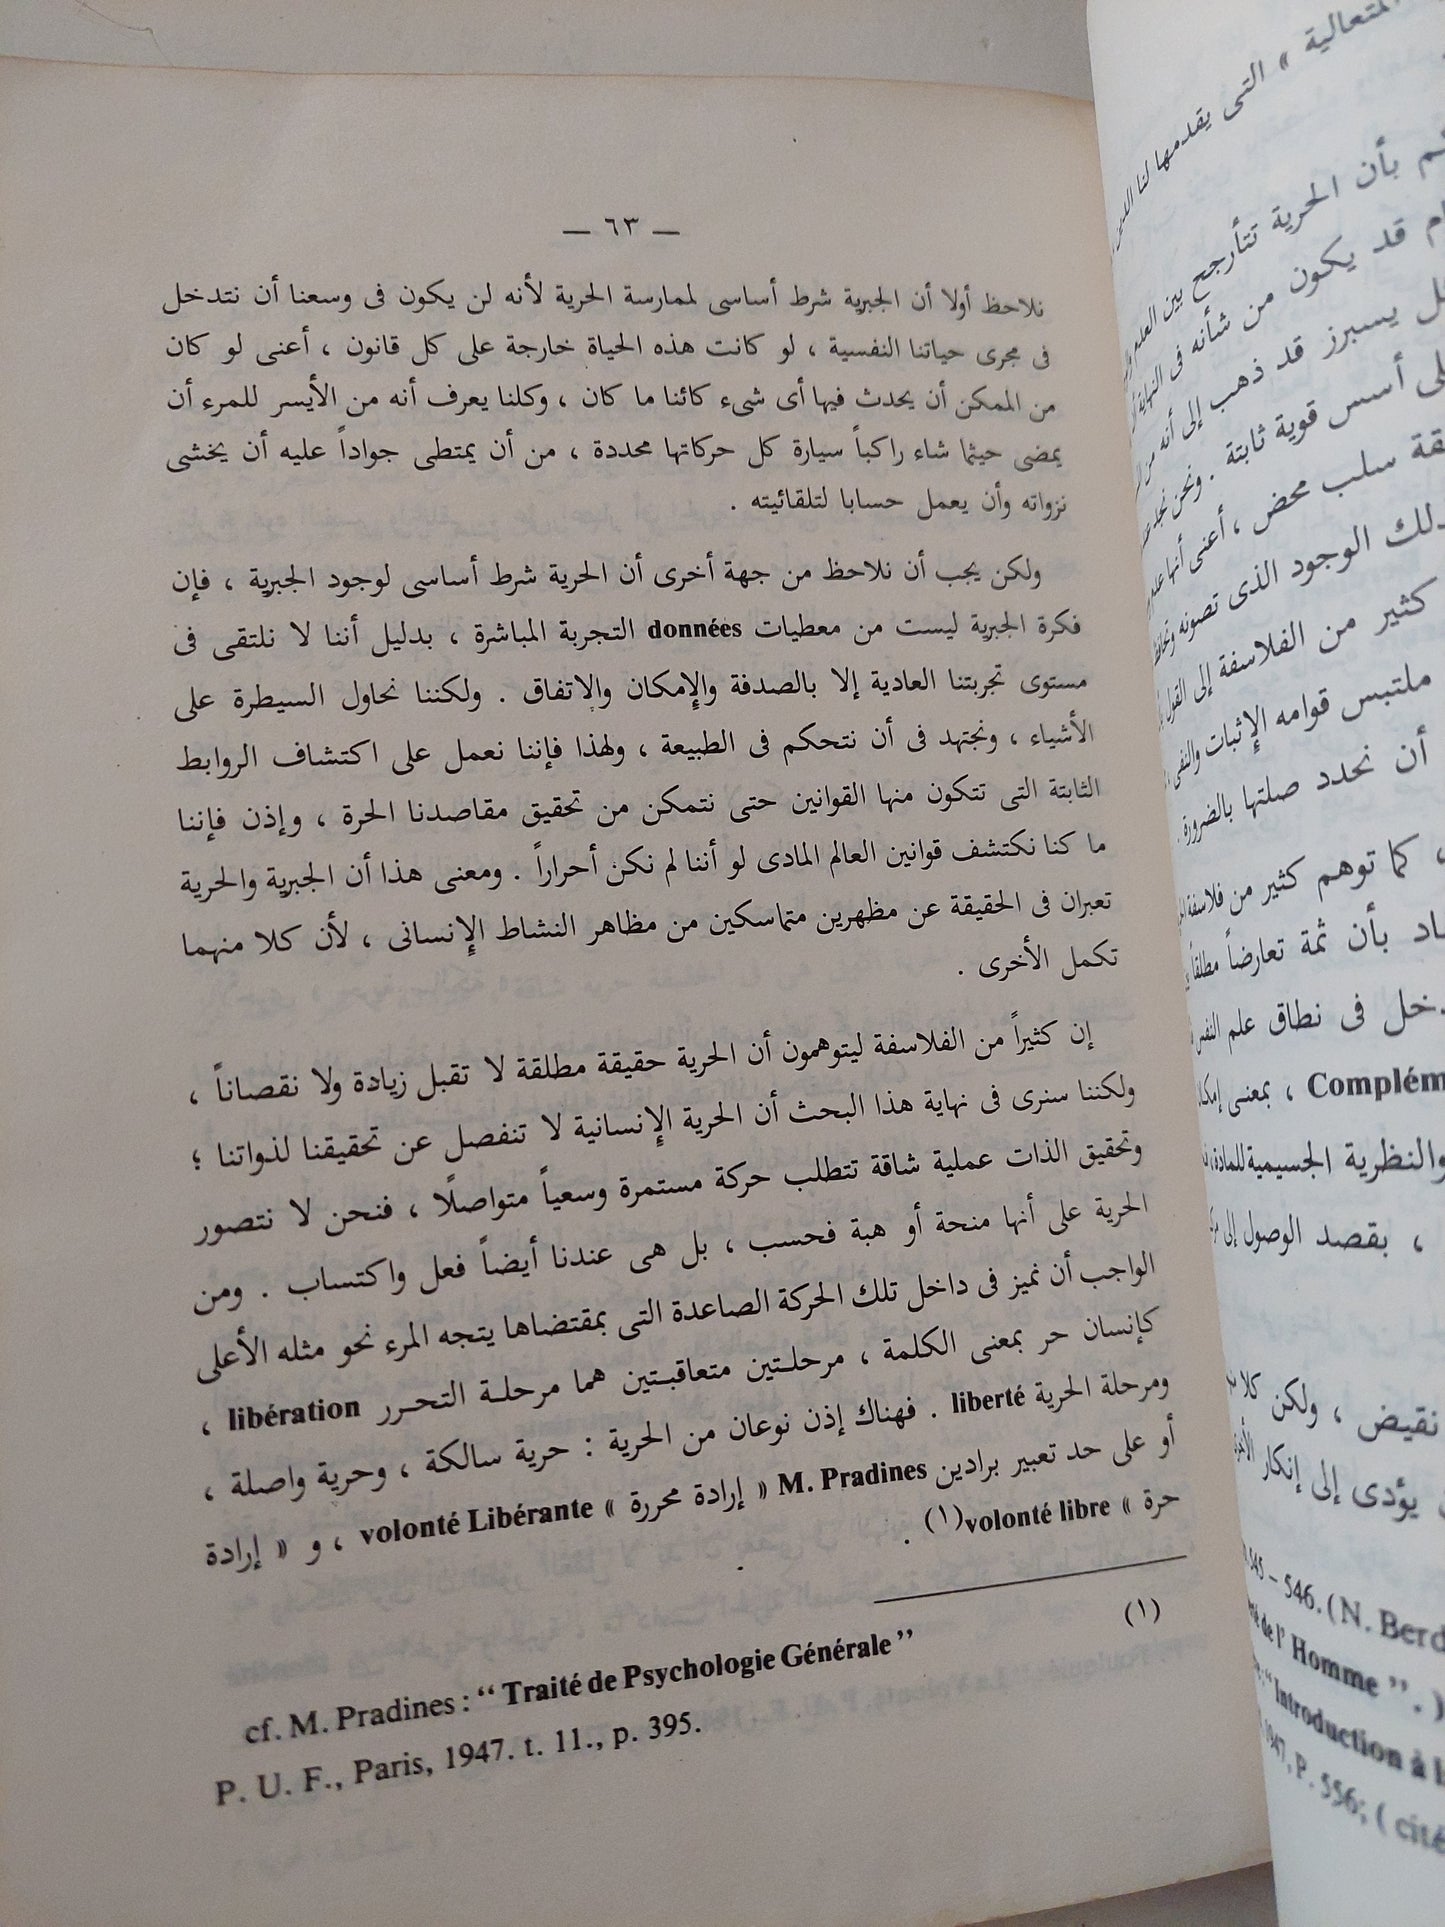 — ٦٣ —
نلاحظ أولا أن الجبرية شرط أساسى لممارسة الحرية لأنه لن يكون فى وسعنا أن نتدخل
فى مجرى حياتنا النفسية ، لو كانت هذه الحياة خارجة على كل قانون ، أعنى لو كان
من الممكن أن يحدث فيها أى شىء كائنا ما كان ، وكلنا يعرف أنه من الأيسر للمرء أن
يمضى حيثما شاء راكباً سيارة كل حركاتها محددة ، من أن يمتطى جواداً عليه أن يخشى
نزواته وأن يعمل حسابا لتلقائيته .
ولكن يجب أن نلاحظ من جهة أخرى أن الحرية شرط أساسى لوجود الجبرية ، فإن
فكرة الجبرية ليست من معطيات données التجربة المباشرة ، بدليل أننا لا نلتقى فى
مستوى تجربتنا العادية إلا بالصدفة والإمكان والاتفاق . ولكننا نحاول السيطرة على
الأشياء ، ونجتهد فى أن نتحكم فى الطبيعة ، ولهذا فإننا نعمل على اكتشاف الروابط
الثابتة التى تتكون منها القوانين حتى نتمكن من تحقيق مقاصدنا الحرة ، وإذن فإننا
ما كنا نكتشف قوانين العالم المادى لو أننا لم نكن أحراراً . ومعنى هذا أن الجبرية والحرية
تعبران فى الحقيقة عن مظهرين متماسكين من مظاهر النشاط الإنسانى ، لأن كلا منهما
تكمل الأخرى .
إن كثيراً من الفلاسفة ليتوهمون أن الحرية حقيقة مطلقة لا تقبل زيادة ولا نقصاناً ،
ولكننا سنرى فى نهاية هذا البحث أن الحرية الإنسانية لا تنفصل عن تحقيقنا لذواتنا ؛
وتحقيق الذات عملية شاقة تتطلب حركة مستمرة وسعياً متواصلًا ، فنحن لا نتصور
الحرية على أنها منحة أو هبة فحسب ، بل هى عندنا أيضاً فعل واكتساب . ومن
الواجب أن نميز فى داخل تلك الحركة الصاعدة التى بمقتضاها يتجه المرء نحو مثله الأعلى
كإنسان حر بمعنى الكلمة ، مرحلتين متعاقبتين هما مرحلة التحرر libération ،
ومرحلة الحرية liberté . فهناك إذن نوعان من الحرية : حرية سالكة ، وحرية واصلة ،
أو على حد تعبير برادين M. Pradines « إرادة محررة » volonté Libérante ، و « إرادة
حرة » volonté libre(١) .
(١)
cf. M. Pradines : “ Traité de Psychologie Générale ”
P. U. F., Paris, 1947. t. 11., p. 395.
المتعالية » التى يقدمها لنا
بأن الحرية تتأرجح بين
قد يكون من شأنه فى النهاية
يسبرز قد ذهب إلى أنه
أسس قوية ثابتة . ونحن نجد
سلب محض ، أعنى أنها
الوجود الذى تصونه
كثير من الفلاسفة إلى القول
ملتبس قوامه الإثبات والنفى
أن نحدد صلتها بالضرورة
، كما توهم كثير من فلاسفة
بأن ثمة تعارضاً مطلقاً
فى نطاق علم النفس
، بمعنى
والنظرية الجسيمية للمادة
، بقصد الوصول إلى
نقيض ، ولكن
يؤدى إلى إنكار
545 – 546. (N.
de l’ Homme ” . )
“ Introduction à
1947, P. 556; (